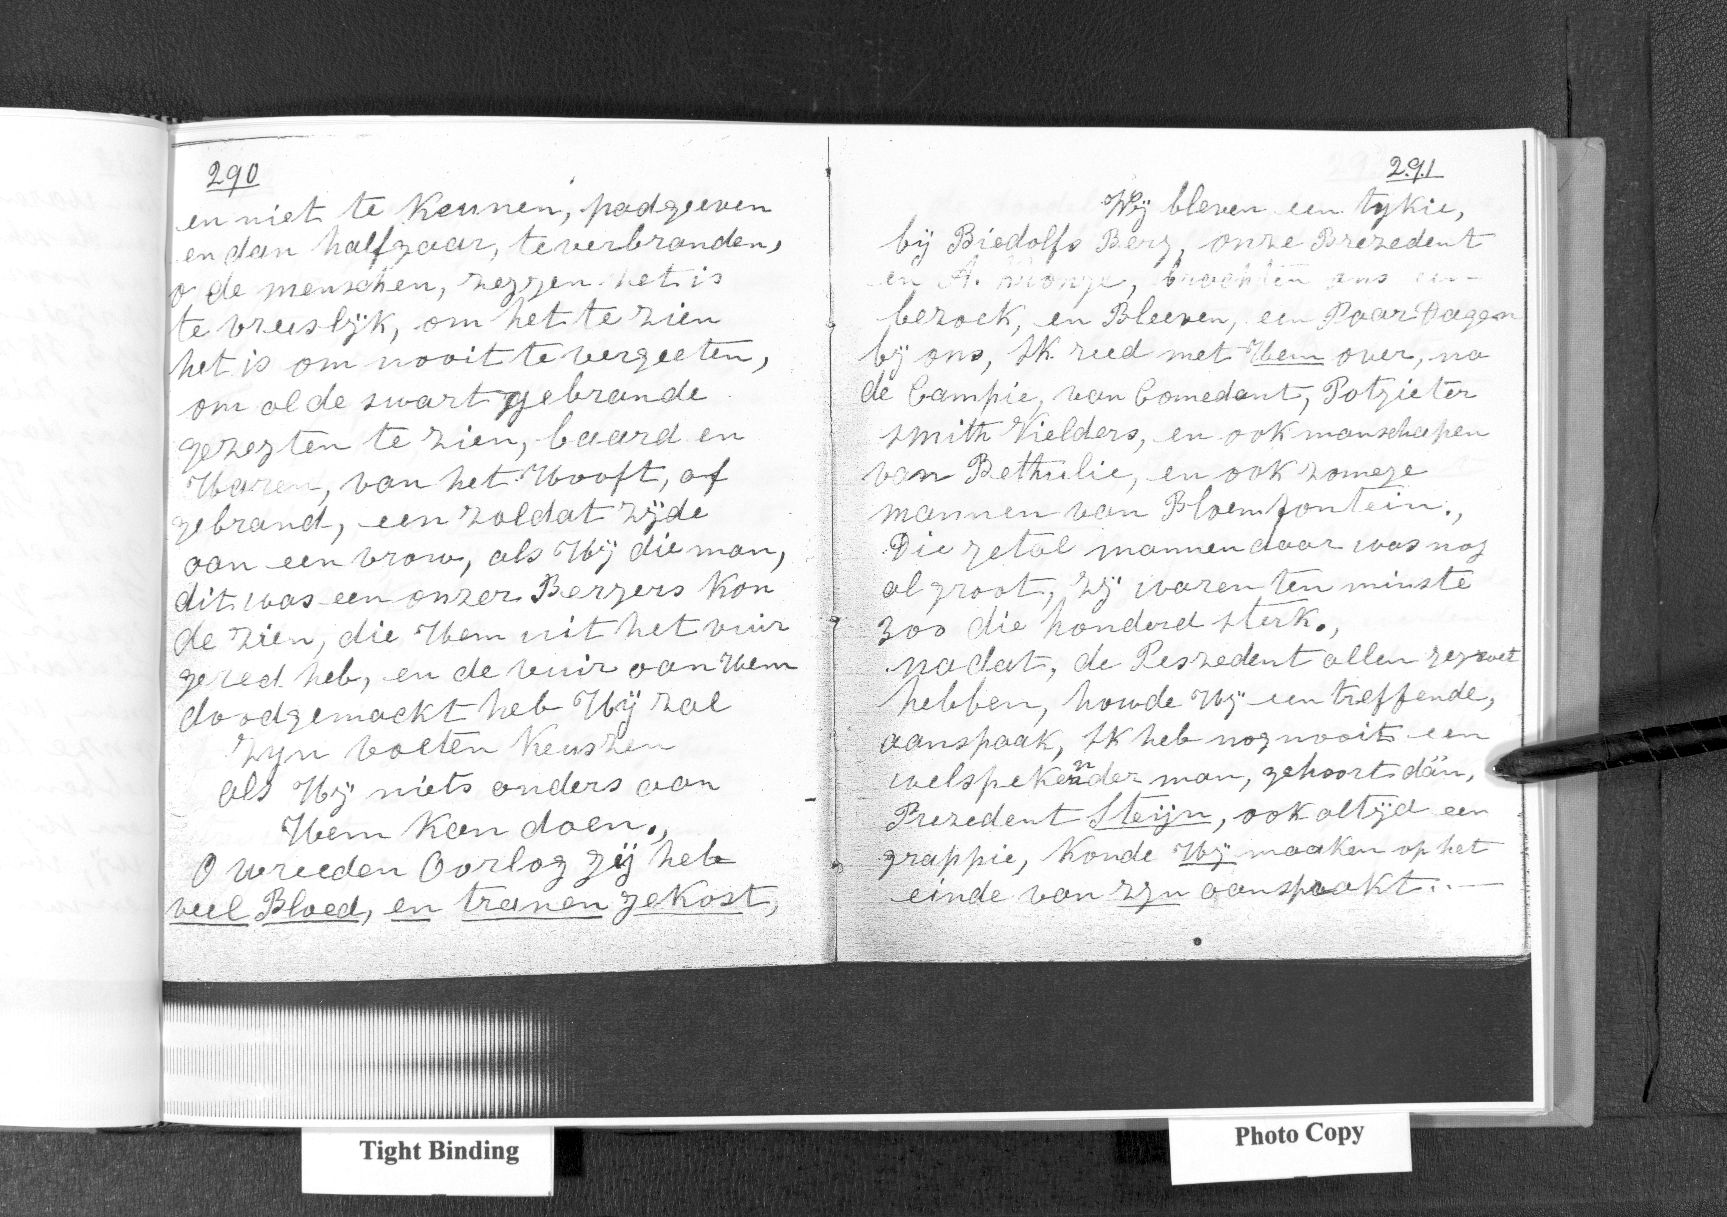 290
en niet te kennen, padgeeven
en dan halfgaar, te verbranden,
o de menschen, zeggen het is
te vreeslijk, om het te zien
het is om nooit te vergeeten,
om al de swart gebrande
gezegten te zien, baard en
Haren, van het Hooft, af
gebrand, een zoldat zijde
aan een vrow, als Hij die man,
dit was een onzer Bergers kon
de zien, die Hem uit het vuir
gered heb, en de vuir aan Hem
doodgemackt heb Hij zal
zyn voeten keuszen
als Hij niets anders aan
Hem kan doen.,
O wreeden Oorlog gij heb
veel Bloed, en tranen gekost,
291
Wij bleven een tykie,
bij Biedolfs Berg, onze Brezedent
en A. brachten ons een
bezoek, en Bleeven, een Paar Dagen
bij ons, Ik reed met Hem over, na
de Campie, van Comedant, Potgieter
Smith Vielders, en ook manschapen
van Bethulie, en ook zomege
mannen van Bloemfontein.,
Die getal mannen daar was nog
al groot, zij waren ten minste
300 die honderd sterk.,
na dat, de Peszedent allen gegroet
hebben, howde Hij een treffende,
aanspaak, Ik heb nog nooit een
welspekender man, gehoort dän,
Prezedent Steijn, ook altijd een
grappie, konde Hij maaken op het
einde van zyn aanspraakt..—
Tight Binding
Photo Copy